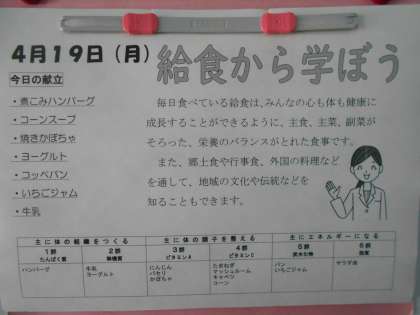 4月19日(月)
給食から学ぼう
今日の献立
・煮こみハンバーグ
・コーンスープ
・焼きかぼちゃ
・ヨーグルト
・コッペパン
・いちごジャム
・牛乳
毎日食べている給食は、みんなの心も体も健康に
成長することができるように、主食、主菜、副菜が
そろった、栄養のバランスがとれた食事です。
また、郷土食や行事食、外国の料理など
を通して、地域の文化や伝統などを
知ることもできます。
主に体の組織をつくる 主に体の調子を整える 主にエネルギーになる
1群 2群 3群 4群 5群 6群
たんぱく質 無機質 ビタミンA ビタミンC 炭水化物 脂質
ハンバーグ 牛乳 にんじん たまねぎ パン サラダ油
ヨーグルト パセリ マッシュルーム いちごジャム
かぼちゃ キャベツ
コーン